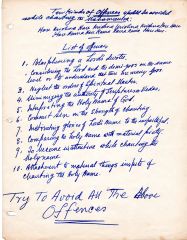 Ten kinds of Offences which to be avoided
while chanting the Mahamantra:
Hare Krishna Hare Krishna Krishna Krishna Hare Hare
Hare Rama Hare Rama Rama Rama Hare Hare
List of offences
1. Blaspheming a Lord's devotee.
2. Considering the Lord and the demi-gods on the same
level or to understand that there are many gods
3. Neglect the orders of Spiritual Master.
4. Minimizing the authority of Scriptures Vedas.
5. Interpreting the Holy Name of God.
6. Commit sin on the strength of chanting
7. Instructing glory of Lord's Name to the unfaithful.
8. Comparing the holy Name with material piety.
9. To become inattentive while chanting the
holy name
10. Attachment to material things inspite of
chanting the Holy Name.
Try To Avoid All The Above
Offences